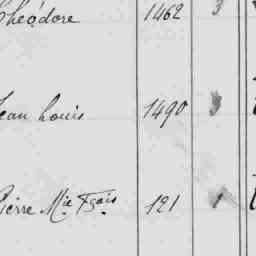 Théodore 1462 3
Jean Louis 1490 3
Pierre Mie Fçois 121 1